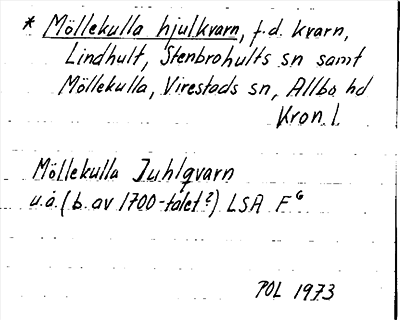 * Möllekulla hjulkvarn, f.d. kvarn,
Lindhult, Stenbrohults sn samt
Möllekulla, Virestads sn, Allbo hd
Kron. l.
Möllekulla Juhlqvarn
u.å. (b. av 1700-talet?) LSA F⁶
POL 1973